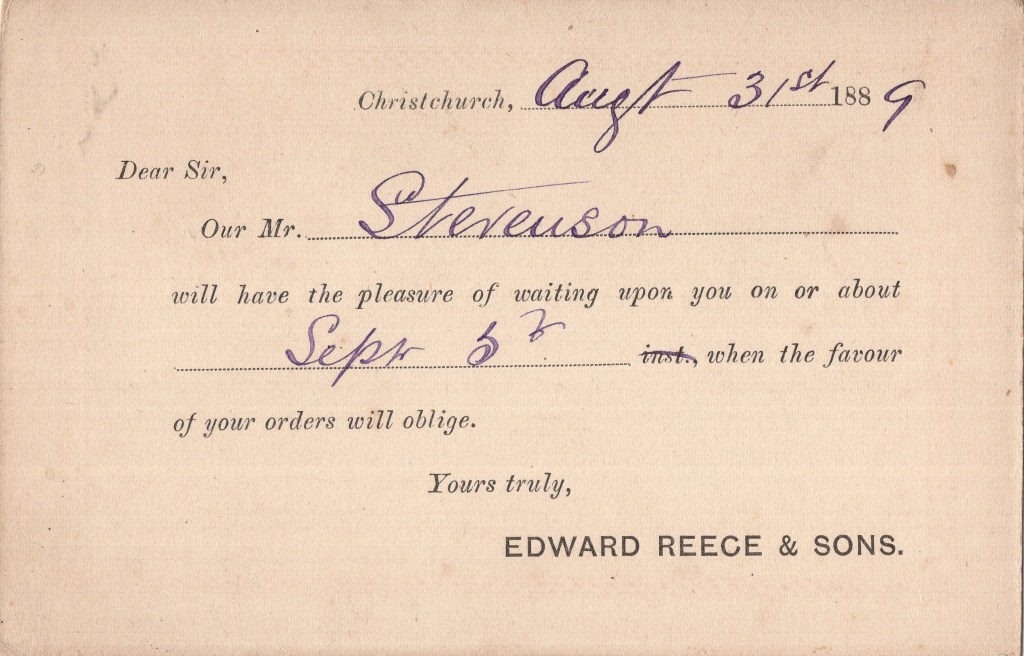 Christchurch, Augt 31st 1889
Dear Sir,
Our Mr. Stevenson
will have the pleasure of waiting upon you on or about
Sepr 5 inst., when the favour
of your orders will oblige.
Yours truly,
EDWARD REECE & SONS.